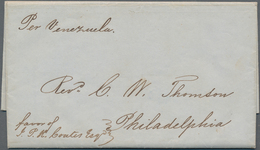 Per Venezuela.
Rev. C. W. Thomson
Philadelphia
favor of
J. P. R. Coates Esq